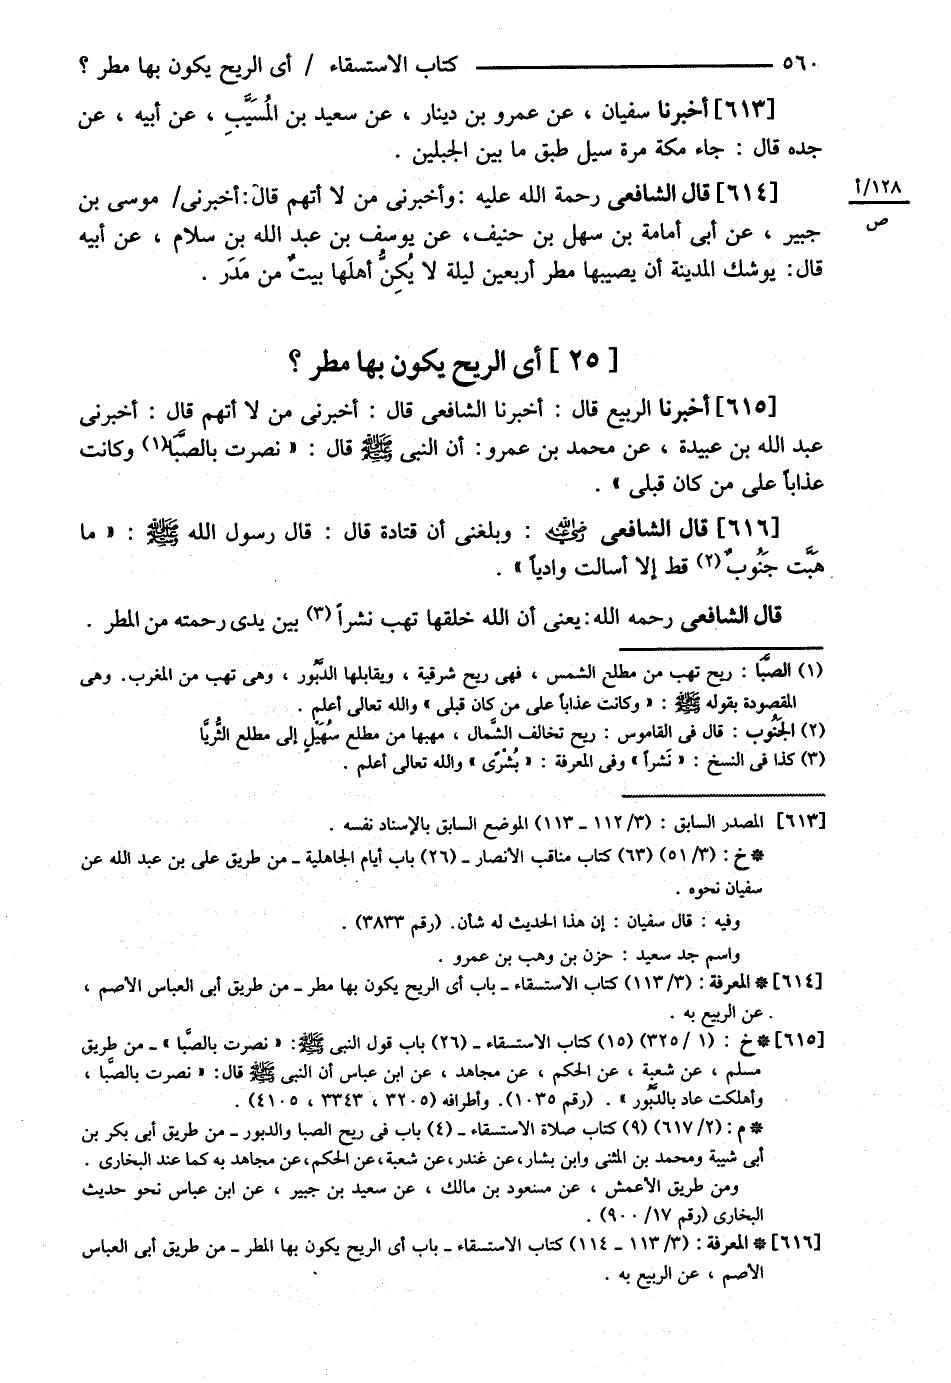 ٥٦٠ ــــــــــــ كتاب الاستسقاء / أى الريح يكون بها مطر ؟
[٦١٣] أخبرنا سفيان ، عن عمرو بن دينار ، عن سعيد بن المُسَيَّبِ ، عن أبيه ، عن
جده قال : جاء مكة مرة سيل طبق ما بين الجبلين .
١٢٨/أ
ص
[٦١٤] قال الشافعى رحمة الله عليه : وأخبرنى من لا أتهم قال: أخبرنى/ موسى بن
جبير ، عن أبى أمامة بن سهل بن حنيف، عن يوسف بن عبد الله بن سلام ، عن أبيه
قال: يوشك المدينة أن يصيبها مطر أربعين ليلة لا يُكِنُّ أهلَها بيتٌ من مَدَر .
[ ٢٥ ] أى الريح يكون بها مطر ؟
[٦١٥] أخبرنا الربيع قال : أخبرنا الشافعى قال : أخبرنى من لا أتهم قال : أخبرنى
عبد الله بن عبيدة ، عن محمد بن عمرو: أن النبى ﷺ قال : « نصرت بالصَّبَا(١) وكانت
عذاباً على من كان قبلى » .
[٦١٦] قال الشافعى رضي الله عنه : وبلغنى أن قتادة قال : قال رسول الله ﷺ : « ما
هَبَّت جَنُوبٌ(٢) قط إلا أسالت وادياً » .
قال الشافعى رحمه الله: يعنى أن الله خلقها تهب نشراً (٣) بين يدى رحمته من المطر .
(١) الصَّبَا : ريح تهب من مطلع الشمس ، فهى ريح شرقية ، ويقابلها الدَّبُور ، وهى تهب من المغرب. وهى
المقصودة بقوله ﷺ : « وكانت عذاباً على من كان قبلى » والله تعالى أعلم .
(٢) الجَنُوب : قال فى القاموس : ريح تخالف الشَّمال ، مهبها من مطلع سُهَيْلٍ إلى مطلع الثُّريَّا
(٣) كذا فى النسخ : « نَشراً » وفى المعرفة : « بُشْرًى » والله تعالى أعلم .
[٦١٣] المصدر السابق : (٣/ ١١٢ ـ ١١٣) الموضع السابق بالإسناد نفسه .
* خ : (٣/ ٥١) (٦٣) كتاب مناقب الأنصار ـ (٢٦) باب أيام الجاهلية ـ من طريق على بن عبد الله عن
سفيان نحوه .
وفيه : قال سفيان : إن هذا الحديث له شأن. (رقم ٣٨٣٣) .
واسم جد سعيد : حزن بن وهب بن عمرو .
[٦١٤] * المعرفة : (٣/ ١١٣) كتاب الاستسقاء ـ باب أى الريح يكون بها مطر ـ من طريق أبى العباس الأصم ،
عن الربيع به .
[٦١٥] * خ : (١ / ٣٢٥) (١٥) كتاب الاستسقاء ـ (٢٦) باب قول النبى ﷺ: « نصرت بالصَّبا » ـ من طريق
مسلم ، عن شعبة ، عن الحكم ، عن مجاهد ، عن ابن عباس أن النبى ﷺ قال: « نصرت بالصَّبا ،
وأهلكت عاد بالدَّبُور » . (رقم ١٠٣٥). وأطرافه (٣٢٠٥ ، ٣٣٤٣ ، ٤١٠٥) .
* م : (٢/ ٦١٧) (٩) كتاب صلاة الاستسقاء ـ (٤) باب فى ريح الصبا والدبور ـ من طريق أبى بكر بن
أبى شيبة ومحمد بن المثنى وابن بشار، عن غندر، عن شعبة، عن الحكم، عن مجاهد به كما عند البخارى .
ومن طريق الأعمش ، عن مسعود بن مالك ، عن سعيد بن جبير ، عن ابن عباس نحو حديث
البخارى (رقم ١٧/ ٩٠٠) .
[٦١٦] * المعرفة : (٣/ ١١٣ ـ ١١٤) كتاب الاستسقاء ـ باب أى الريح يكون بها المطر ـ من طريق أبى العباس
الأصم ، عن الربيع به .